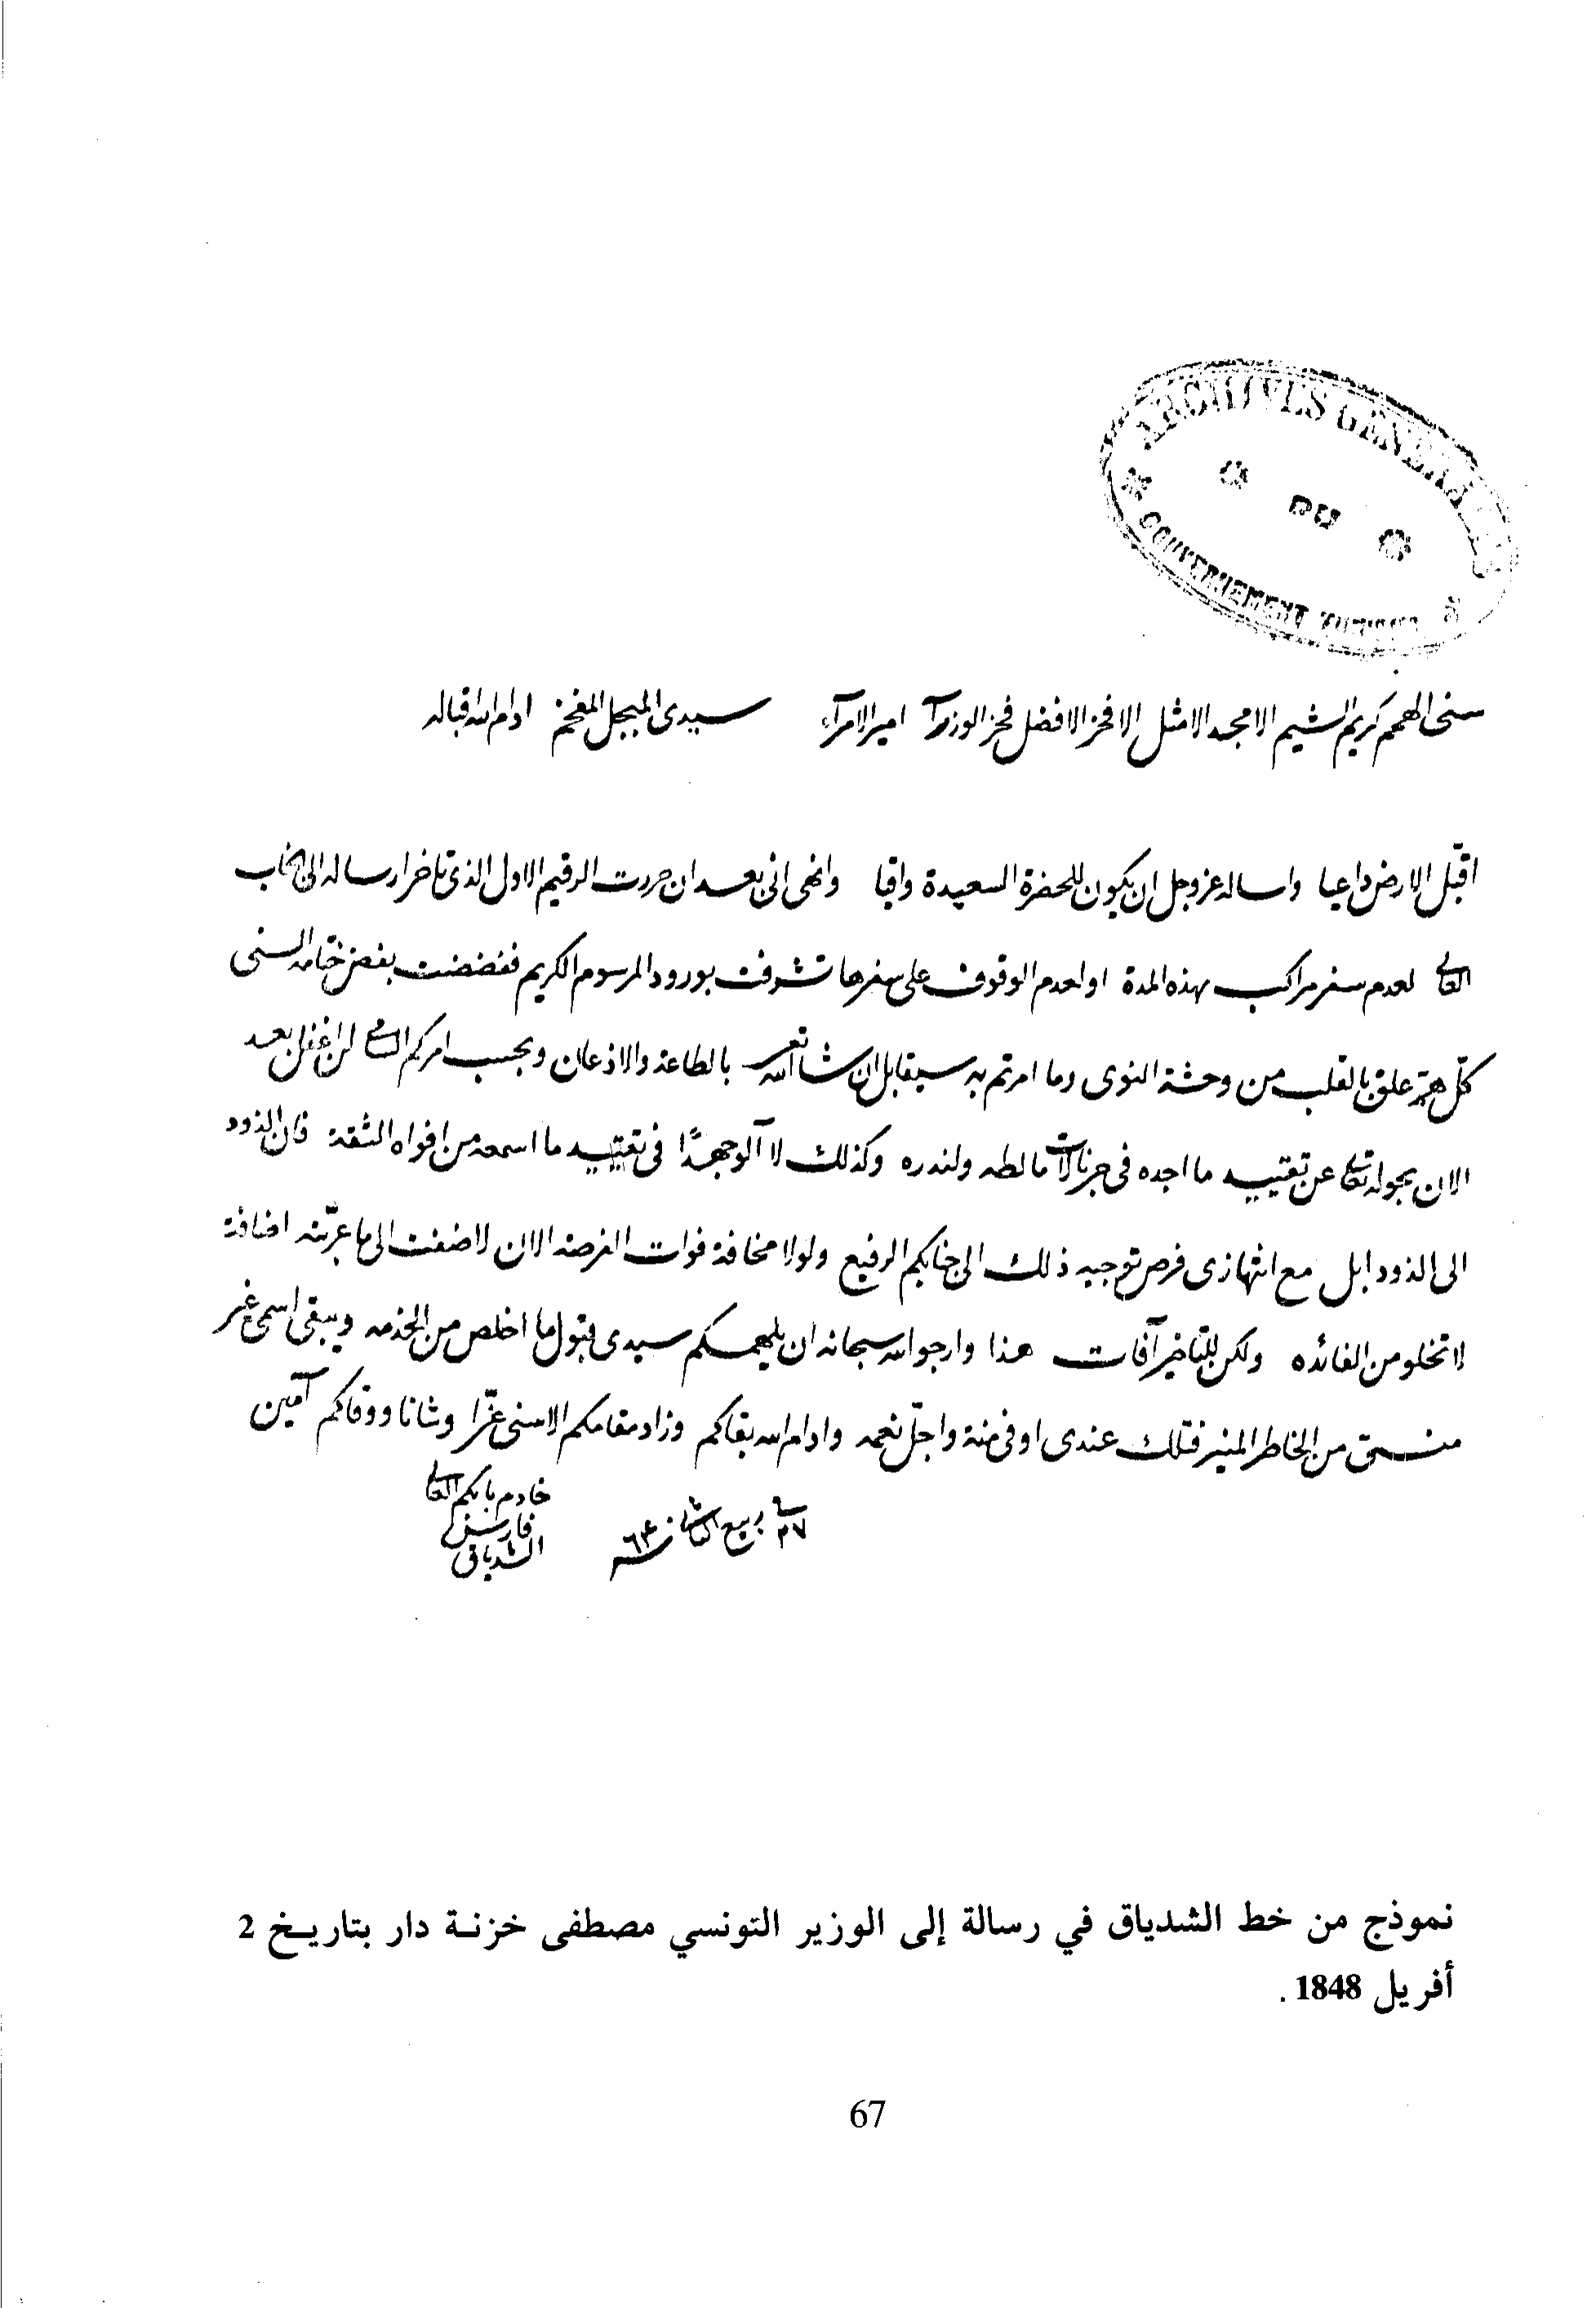 ARCHIVES GÉNÉRALES
DU
GOUVERNEMENT
سنى الهمم كريم الشيم الامجد الامثل الافخر الافضل فخر الوزرآ امير الامرآء سيدى المبجل المفخم ادام الله اقباله
اقبّل الارض داعيا واساله عز وجل ان يكون للحضرة السعيدة واقيا وانهى انى بعد ان حررت الرقيم الاول الذى تاخر ارساله الى الجناب
العالى لعدم سفر مراكب بهذه المدة او لعدم الوقوف على سفرها تشرفت بورود المرسوم الكريم ففضضت بفض ختامه السنى
كلّ همّ علق بالقلب من وحشة النوى وما امرتم به سيقابل ان شا الله تعـ بالطاعة والاذعان وبحسب امركم السامى لن اغفل بعد
الان بحوله تعالى عن تقييد ما اجده فى جرنالات مالطه ولندره وكذلك لا آلو جهدًا فى تقييد ما اسمعه من افواه الثقة فان الذود
الى الذود ابل مع انتهازى فرص توجيه ذلك الى جنابكم الرفيع ولولا مخافة فوات الفرصة الان لاضفت الى ما عرّبته اضافة
لا تخلو من الفائده ولكن للتاخير آفات هذا وارجو الله سبحانه ان يلهمكم سيدى قبول ما اخلص من الخدمه ويبقى اسمى غير
منسى من الخاطر المنير فتلك عندى اوفى منة واجلّ نعمه وادام الله بقاكم وزاد مقامكم الاسنى عزّا وشانا ووقاكم آمين
خادم بابكم العالى
فارس
الشدياق
٢٧ ربيع الثانى سنة ٦٤
نموذج من خط الشدياق في رسالة إلى الوزير التونسي مصطفى خزنة دار بتاريخ 2
أفريل 1848 .
67